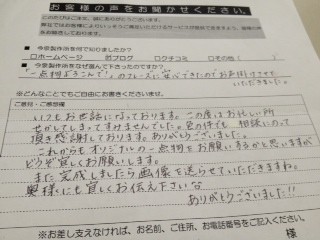 お客様の声をお聞かせください。
このたびはご
弊社ではお客様により
をお願いしております。
※今泉製作所を何で知りましたか？
□ホームページ □ブログ □クチコミ □その他（ ）
※今泉製作所をなぜ選んで下さったのですか？
「一点物ようこんで」のフレーズに
いただきました。
※どんなことでもご自由にお書きくださいませ。
ご意見・ご感想欄
いつもお世話になっております。この度はお忙しい所
せかしてしまってすみませんでした。色の件でも相談にのって
頂き感謝しております。ありがとうございました。
これからもオリジナルの一点物をお願いするかと思いますが
どうぞ宜しくお願いします。
また完成しましたら画像を送らせていただきますね。
奥様にも宜しくお伝え下さいな
ありがとうございました!!
※お差し支えなければ、お名前、ご住所、お電話番号をご記入ください。
様